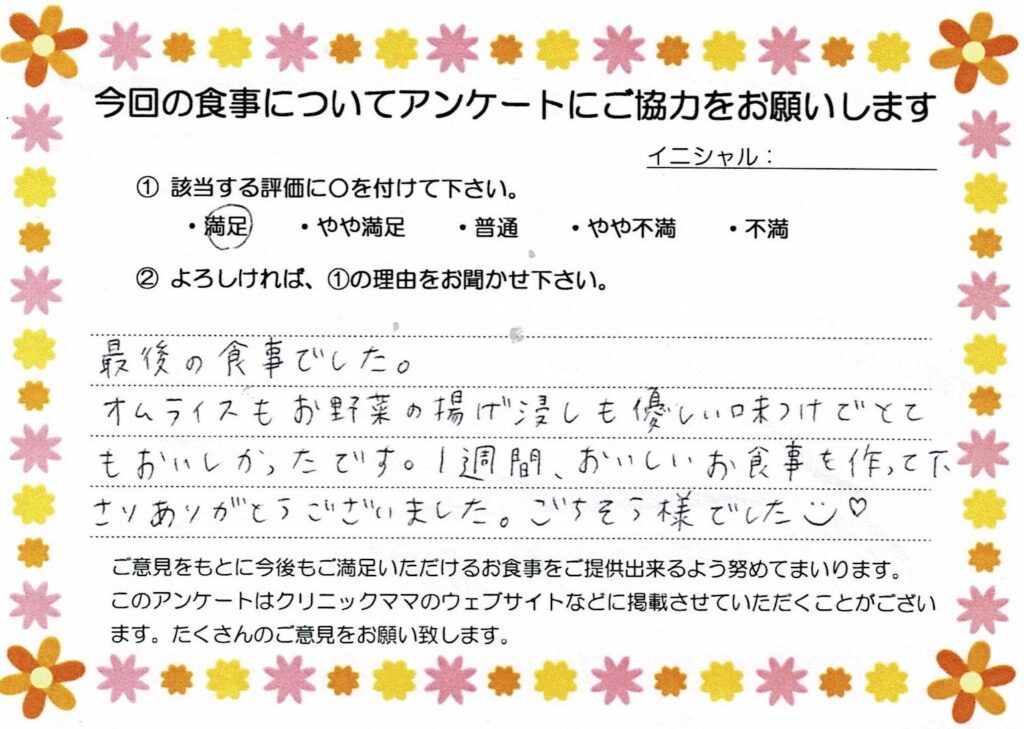 今回の食事についてアンケートにご協力をお願いします
イニシャル：
① 該当する評価に〇を付けて下さい。
・満足 ・やや満足 ・普通 ・やや不満 ・不満
② よろしければ、①の理由をお聞かせ下さい。
最後の食事でした。
オムライスもお野菜の揚げ浸しも優しい味つけでとて
もおいしかったです。1週間、おいしいお食事を作って下
さりありがとうございました。ごちそう様でした☺♡
ご意見をもとに今後もご満足いただけるお食事をご提供出来るよう努めてまいります。
このアンケートはクリニックママのウェブサイトなどに掲載させていただくことがござい
ます。たくさんのご意見をお願い致します。